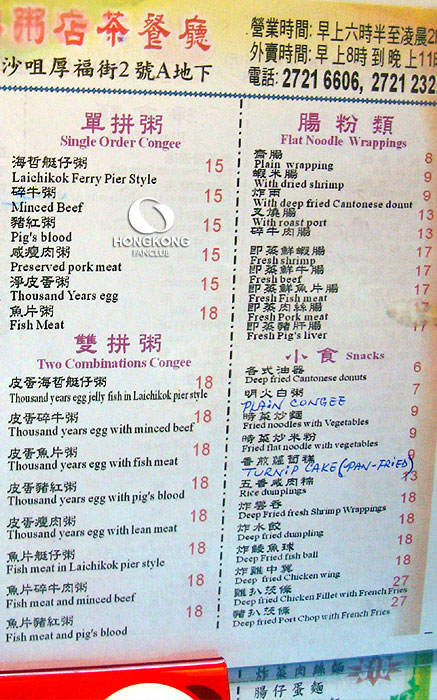 粥店茶餐廳
沙咀厚福街2 號A地下
營業時間: 早上六時半至凌晨2
外賣時間: 早上8時 到 晚上11
電話: 2721 6606, 2721 232
單拼粥
Single Order Congee
海哲艇仔粥 15
Laichikok Ferry Pier Style
碎牛粥 15
Minced Beef
豬紅粥 15
Pig's blood
咸瘦肉粥 15
Preserved pork meat
淨皮蛋粥 15
Thousand Years egg
魚片粥 18
Fish Meat
HONGKONG
FANCLUB
雙拼粥
Two Combinations Congee
皮蛋海哲艇仔粥 18
Thousand years egg jelly fish in Laichikok pier style
皮蛋碎牛粥 18
Thousand years egg with minced beef
皮蛋魚片粥 18
Thousand years egg with fish meat
皮蛋豬紅粥 18
Thousand years egg with pig's blood
皮蛋瘦肉粥 18
Thousand years egg with lean meat
魚片艇仔粥 18
Fish meat in Laichikok pier style
魚片碎牛肉粥 18
Fish meat and minced beef
魚片豬紅粥 18
Fish meat and pig's blood
腸粉類
Flat Noodle Wrappings
齋腸 8
Plain wrapping
蝦米腸 9
With dried shrimp
炸兩 9
With deep fried Cantonese donut
叉燒腸 13
With roast port
碎牛肉腸 13
即蒸鮮蝦腸 17
Fresh shrimp
即蒸鮮牛腸 17
Fresh beef
即蒸鮮魚片腸 17
Fresh Fish meat
即蒸肉絲腸 17
Fresh Pork meat
即蒸豬肝腸 17
Fresh Pig's liver
小食 Snacks
各式油器 6
Deep fried Cantonese donuts
明火白粥 7
PLAIN CONGEE
時菜炒麵 9
Fried noodles with Vegetables
時菜炒米粉 9
Fried flat noodle with vegetables
香煎蘿蔔糕 9
TURNIP CAKE (PAN-FRIED)
五香咸肉粽 13
Rice dumplings
炸雲吞 18
Deep Fried fresh Shrimp Wrappings
炸水餃 18
Deep fried dumpling
炸鯪魚球 18
Deep Fried fish ball
炸雞中翼 18
Deep fried Chicken wing
雞扒茨條 27
Deep fried Chicken Fillet with French Fries
豬扒茨條 27
Deep fried Port Chop with French Fries
炸菜肉絲麵
腸仔蛋麵